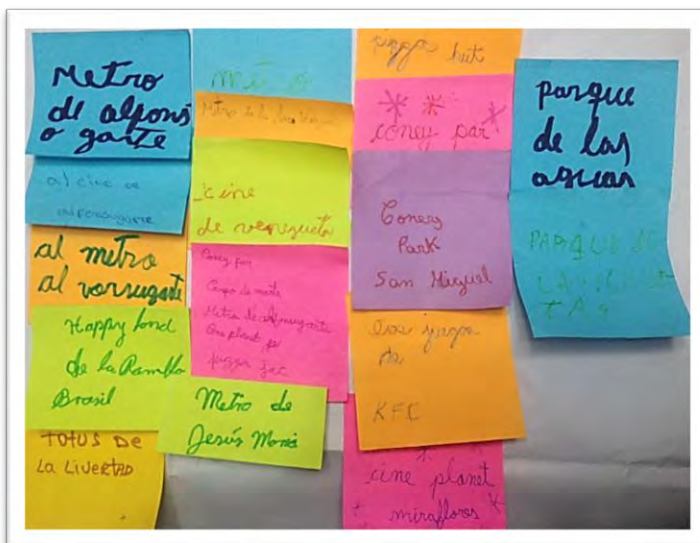 Metro
de alfons
o garte
al cine de
al metro
al vorsugarte
Happy lond
de la Rambla
Brasil
TOTUS DE
LA LIVERTAD
metro
Metro de la
cine
de venezuela
Coney par
Campo de marte
Metro de
Metro de
Jesús Moria
pizza hut
coney par
Coney
Park
San Miguel
los juegos
de
KFC
cine planet
miraflores
parque
de las
aguas
PARQUE DE